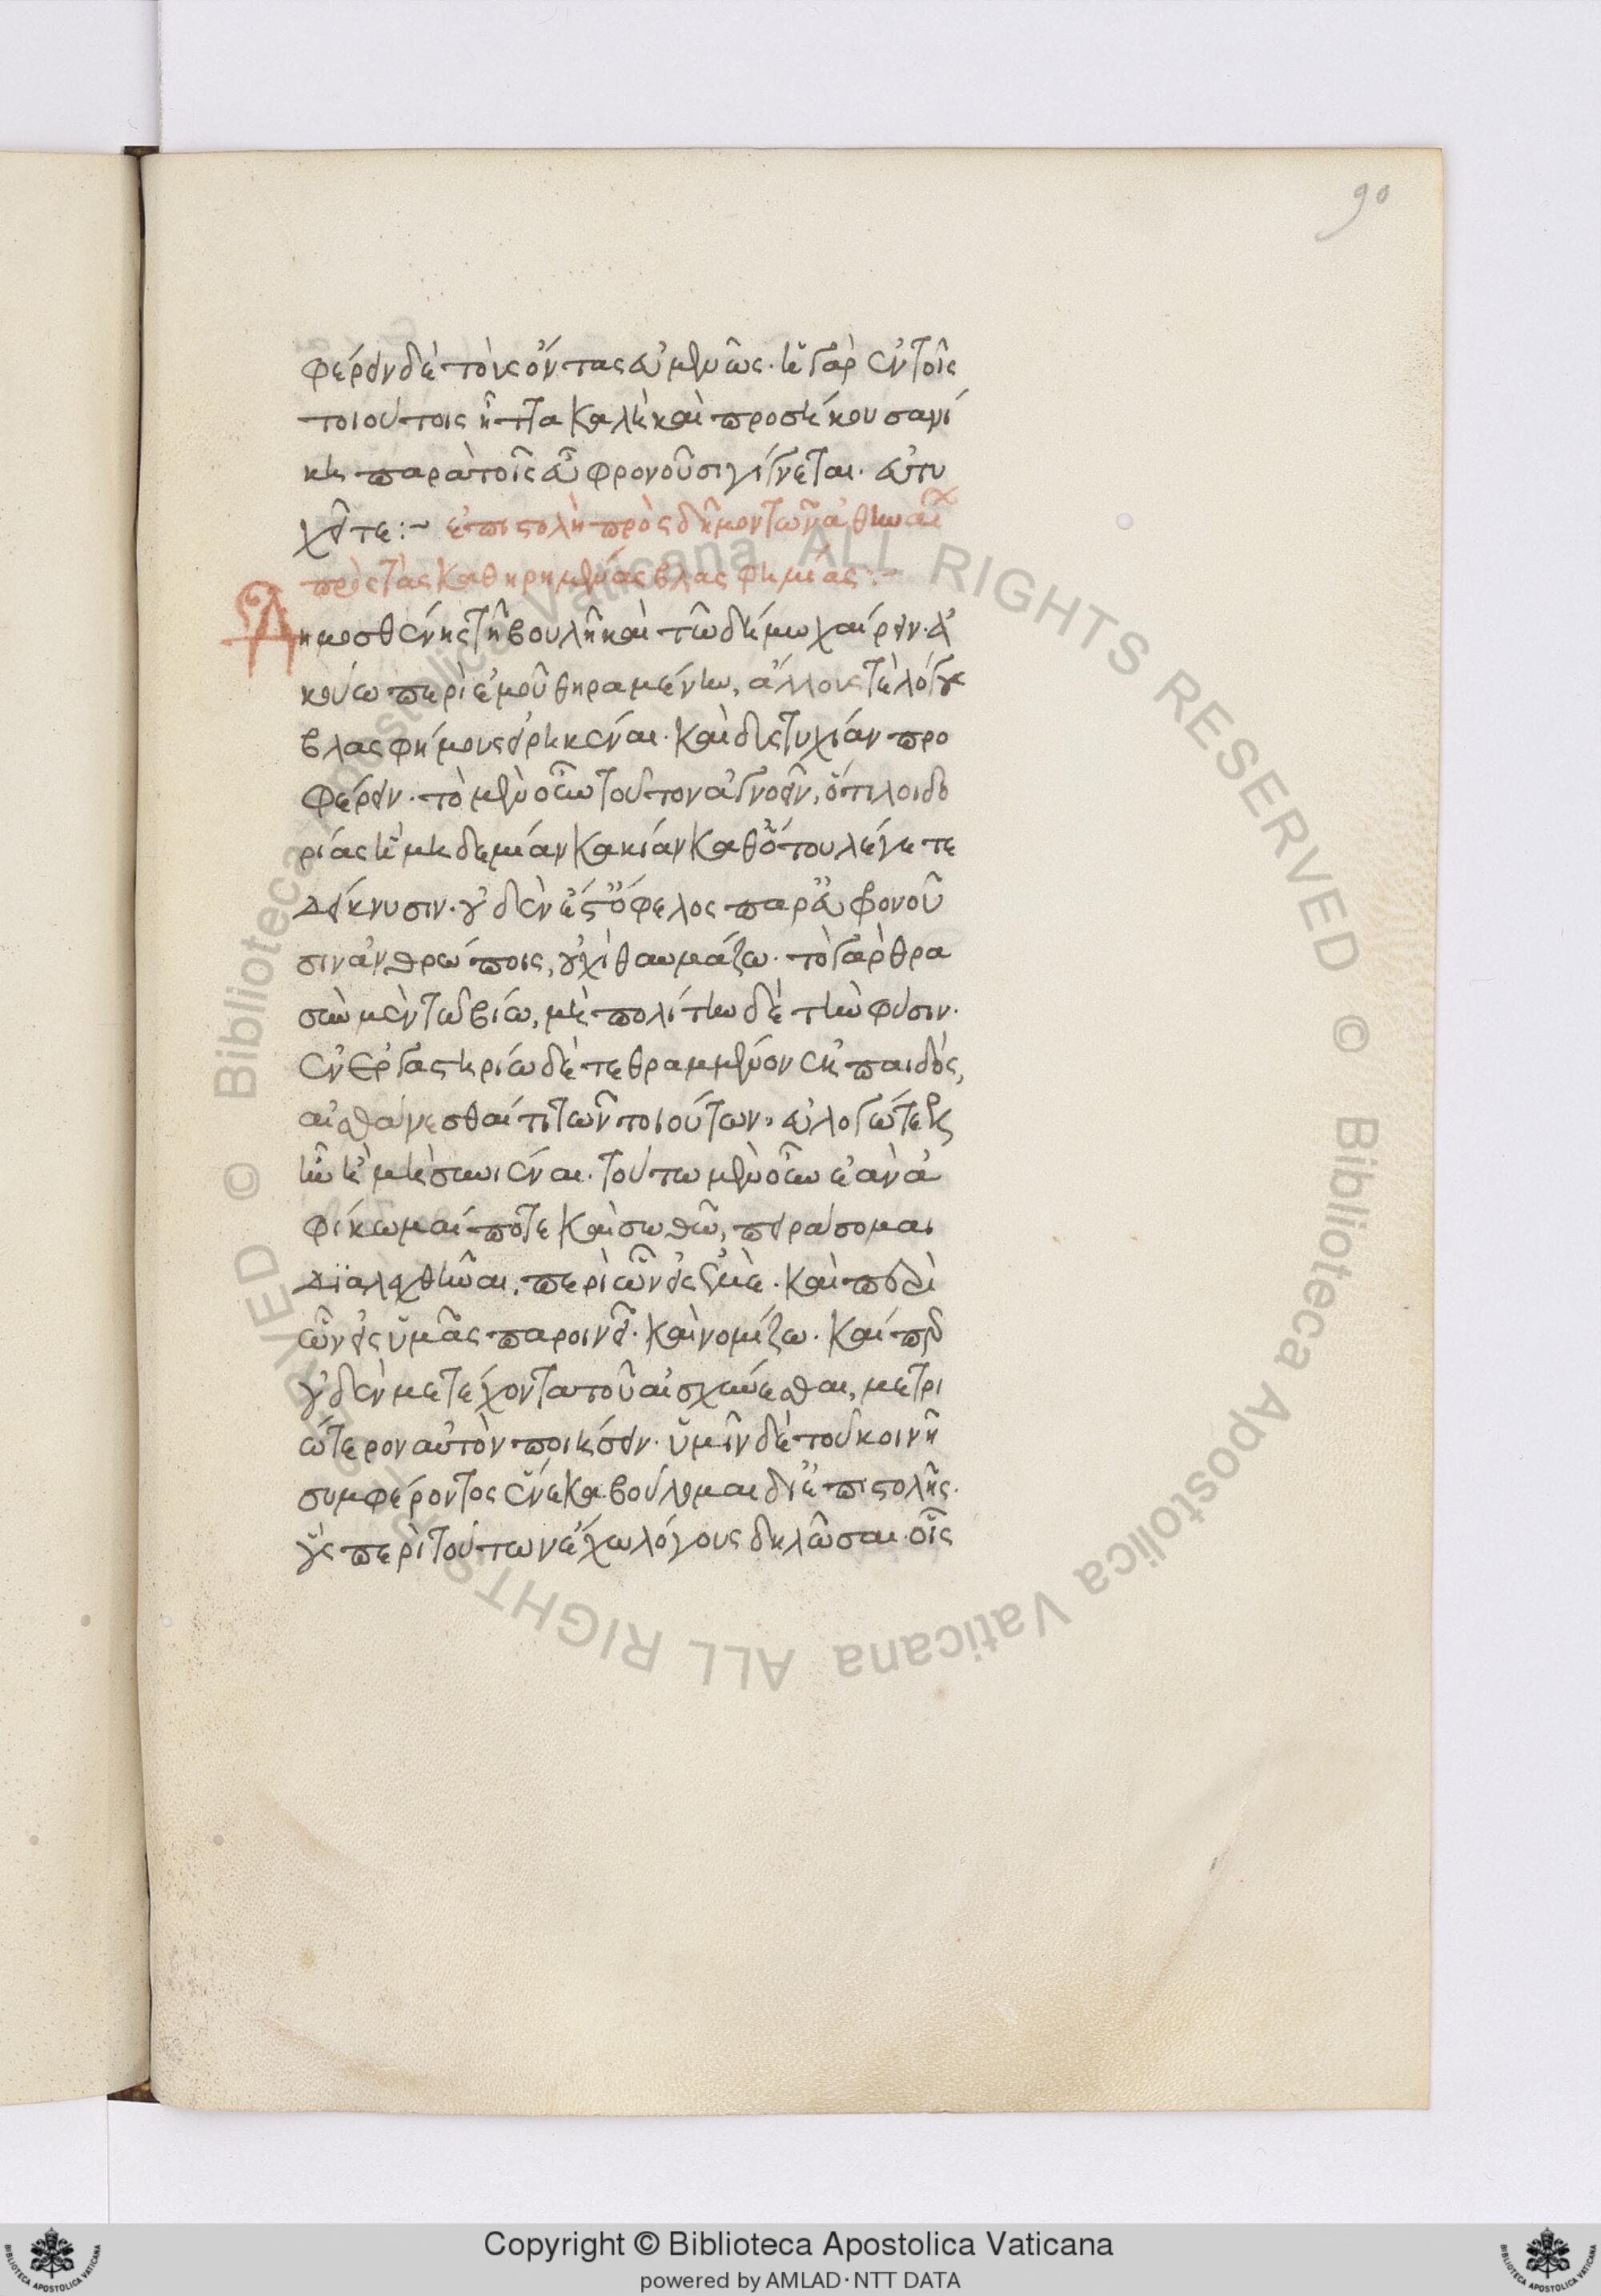 90
φέρειν δὲ τοὺς ὄντας εὐμενῶς. ἡ γὰρ ἐν τοῖς
τοιούτοις ἧττα καλὴ καὶ προσήκουσα νί
κη παρὰ τοῖς εὖ φρονοῦσι γίγνεται. εὐτυ
χεῖτε:~ ἐπιστολὴ πρὸς δῆμον τῶν ἀθηναί
πρὸς τὰς καθηρημένας βλασφημίας:~
Δημοσθένης τῆ βουλῆ καὶ τῶ δήμω χαίρειν. ἀ
κούω περὶ ἐμοῦ θηραμένην, ἄλλους τε λόγους
βλασφήμους εἰρηκέναι. καὶ δυστυχίαν προ
φέρειν. τὸ μὲν οὖν τοῦτον ἀγνοεῖν, ὅτι λοιδο
ρίας ἣ μηδεμίαν κακίαν καθ' ὅτου λέγεται
δείκνυσιν. οὐδέν ἐστ' ὄφελος παρ' εὖ φρονοῦ
σιν ἀνθρώποις, οὐχὶ θαυμάζω. τὸ γὰρ θρα
σὺν μὲν τῶ βίω, μὴ πολίτην δὲ τὴν φύσιν.
ἐν ἐργαστηρίω δὲ τεθραμμένον ἐκ παιδός,
αἰσθάνεσθαί τι τῶν τοιούτων. εὐλογώτερον
ἦν ἢ μὴ συνιέναι. τούτω μὲν οὖν ἐὰν ἀ
φίκωμαί ποτε καὶ σωθῶ, πειράσομαι
διαλεχθῆναι, περὶ ὧν εἰς ἐμὲ. καὶ περὶ
ὧν εἰς ὑμᾶς παροινεῖ. καὶ νομίζω. καίπερ
οὐδὲν μετέχοντα τοῦ αἰσχύνεσθαι, μετρι
ώτερον αὐτὸν ποιήσειν. ὑμῖν δὲ τοῦ κοινῆ
συμφέροντος ἕνεκα βούλομαι δι' ἐπιστολῆς.
οὓς περὶ τούτων ἔχω λόγους δηλῶσαι. οἷς
© Biblioteca Apostolica Vaticana ALL RIGHTS RESERVED © Biblioteca Apostolica Vaticana ALL RIGHTS RESERVED
Copyright © Biblioteca Apostolica Vaticana
powered by AMLAD·NTT DATA
BIBLIOTECA APOSTOLICA VATICANA
BIBLIOTECA APOSTOLICA VATICANA